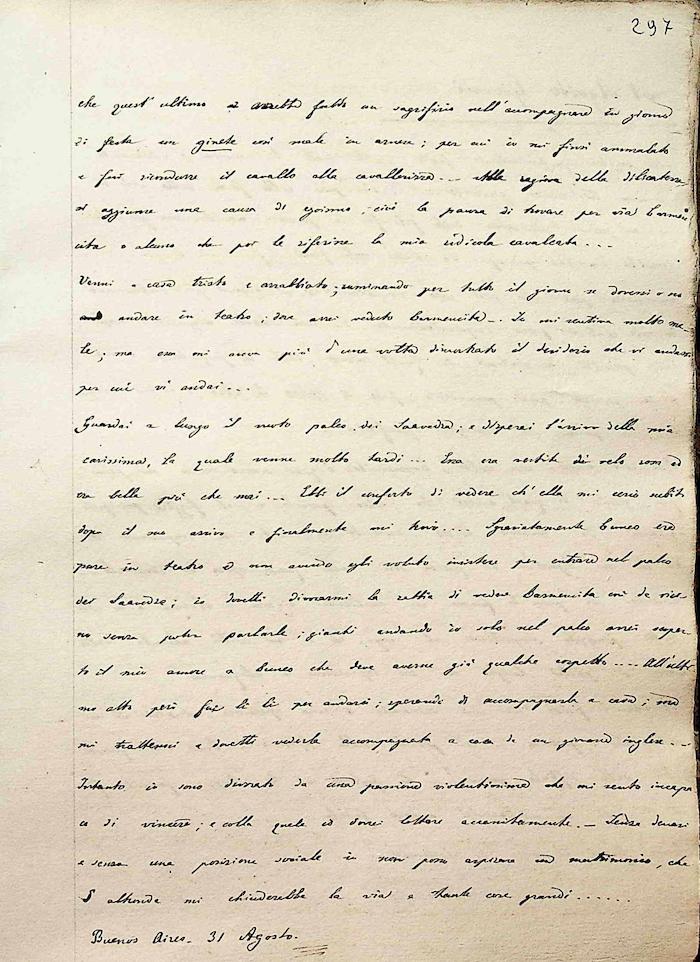 297
che quest' ultimo si avrebbe fatto un sagrifizio nell'accompagnare in giorno
di festa un ginete così male in arnese; per cui io mi finsi ammalato
e feci ricondurre il cavallo alla cavallerizza... Alla ragione della dilicatezza
si aggiunse una causa di egoismo, cioè la paura di trovare per via Carmen
cita o alcuno che poi le riferisse la mia ridicola cavalcata...
Venni a casa tristo e arrabbiato; ruminando per tutto il giorno se dovessi o no
andare in teatro; dove avrei veduto Carmencita... Io mi sentiva molto ma
le; ma essa mi aveva più d'una volta dimostrato il desiderio che vi andassi
per cui vi andai...
Guardai a lungo il vuoto palco dei Saavedra; e disperai l'arrivo della mia
carissima, la quale venne molto tardi... Essa era vestita di velo rosa ed
era bella più che mai... Ebbi il conforto di vedere ch'ella mi cercò subito
dopo il suo arrivo e finalmente mi trovò.... Sgraziatamente Cuneo era
pure in teatro e non avendo egli voluto insistere per entrare nel palco
dei Saavedra; io dovetti divorarmi la rabbia di vedere Carmencita così da vici
no senza poter parlarle; giacchè andando io solo nel palco avrei
to il mio amore a Cuneo che deve averne già qualche sospetto.... All'ulti
mo atto però fui lì lì per andarvi; sperando di accompagnarla a casa;
mi trattenni e dovetti vederla accompagnata a casa da un giovane inglese...
Intanto io sono divorato da una passione violentissima che mi sento incapa
ce di vincere; e colla quale io dovrei lottare accanitamente. — Senza denari
e senza una posizione sociale io non posso aspirare ad un matrimonio, che
d'altronde mi chiuderebbe la via a tante cose grandi......
Buenos Aires. 31 Agosto.